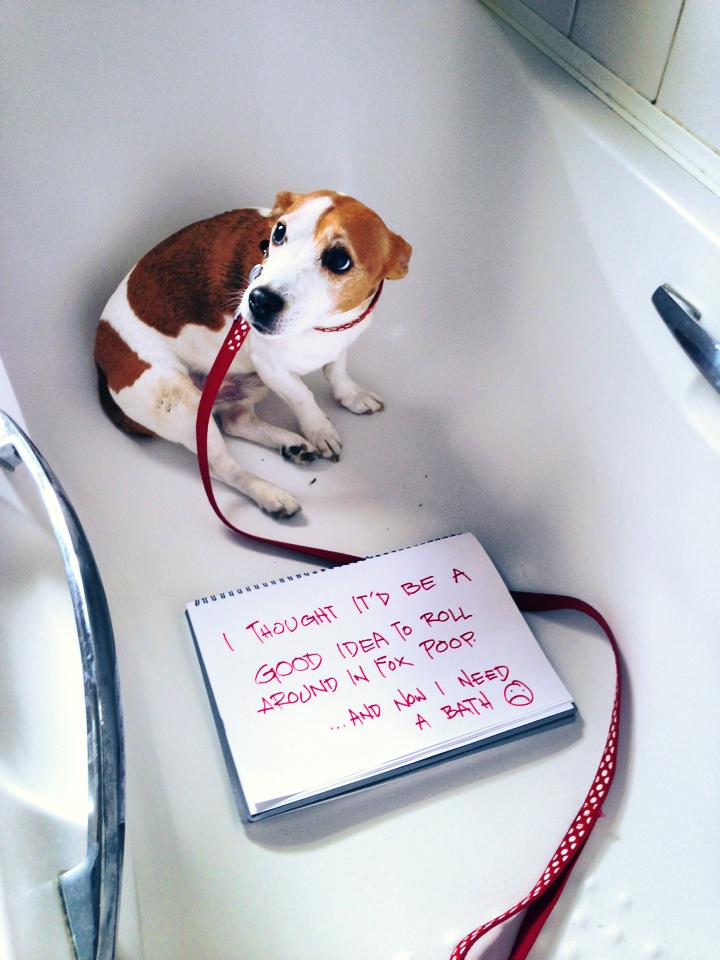 I THOUGHT IT'D BE A
GOOD IDEA TO ROLL
AROUND IN FOX POOP.
...AND NOW I NEED
A BATH ☹